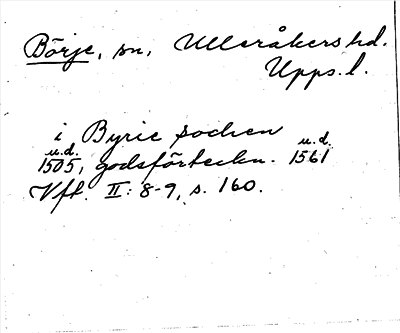 Börje, sn, Ulleråkers hd.
Upps. l.
i Byrie sochen
u.d. u.d.
1505, godsförteckn. 1561
Vft. II: 8-9, s. 160.